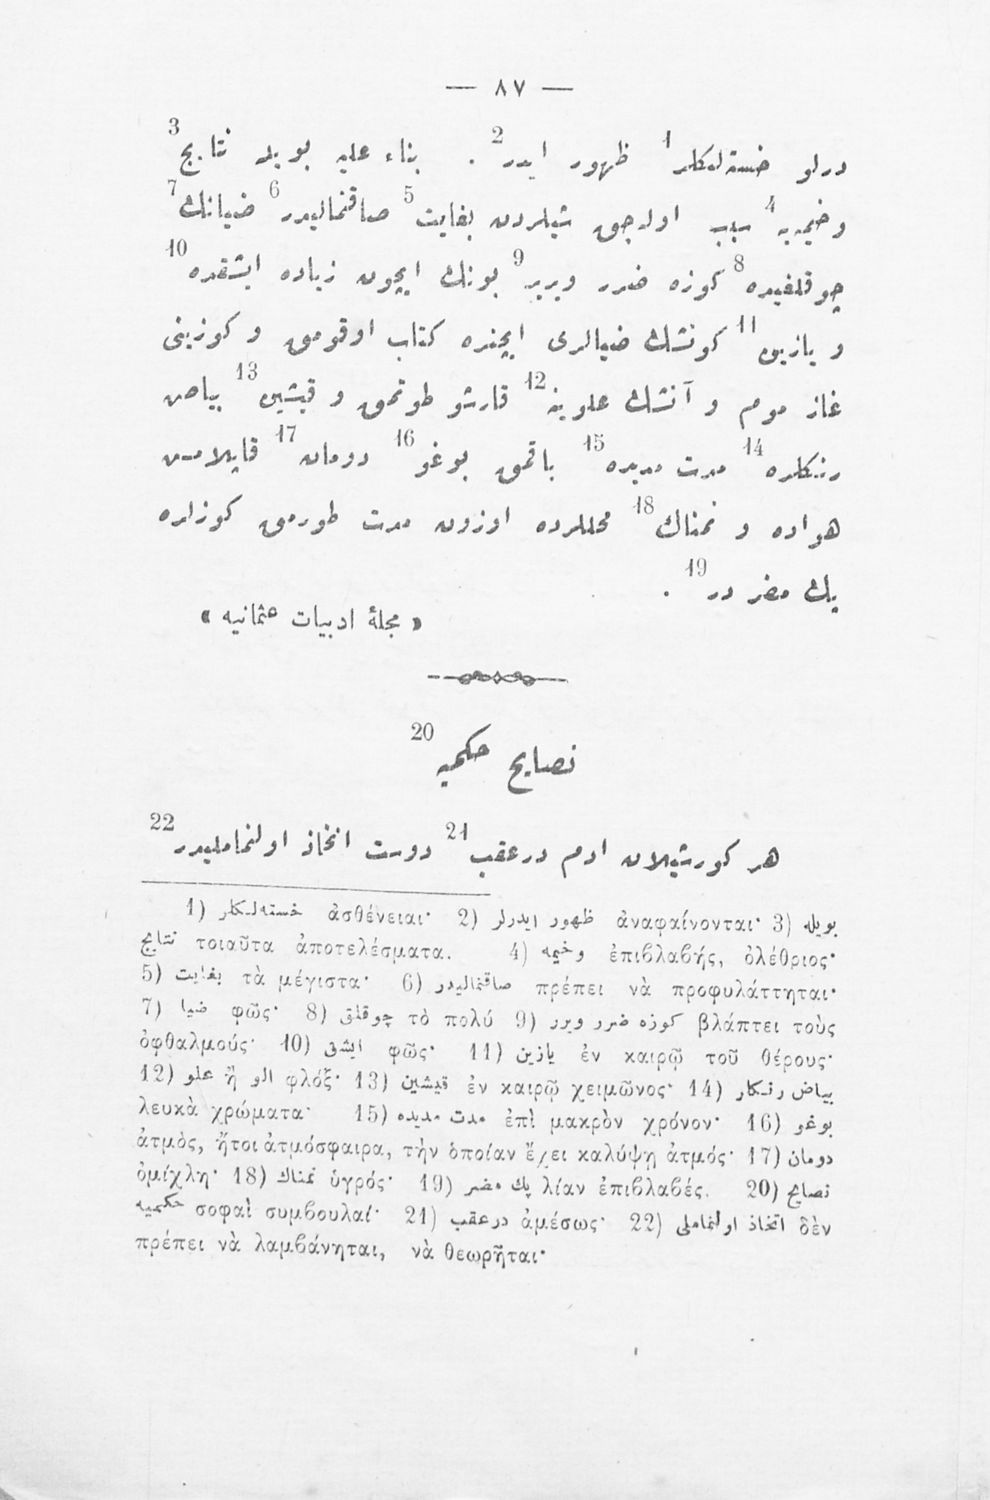 — ٨٧ —
درلو خسته‌لكلر1 ظهور ايدر2 . بناء عليه بويله نتايج3
وخيمه‌يه4 سبب اوله‌جق شيلردن بغايت5 صاقنماليدر6 ضيانك7
چوقلغيده8 كوزه ضرر ويرير9 بونك ايچون زياده ايشقده10
و يازين11 كونشك ضيالرى ايچنده كتاب اوقومق و كوزينى
غاز موم و آتشك علوينه12 قارشو طوتمق و قيشين13 بياض
رنكلره14 مدت مديده15 باقمق بوغو16 دومان17 قاپلامش
هواده و نمناك18 محللرده اوزون مدت طورمق كوزلره
پك مضر در19 .
« مجلۀ ادبيات عثمانيه »
نصايح حكميه20
هر كورشيلان ادم درعقب21 دوست اتخاذ اولنماميدر22
1) خسته‌لكلر ἀσθένειαι· 2) ظهور ايدرلر ἀναφαίνονται· 3) بويله
نتايج τοιαῦτα ἀποτελέσματα. 4) وخيمه ἐπιβλαβής, ὀλέθριος·
5) بغايت τὰ μέγιστα· 6) صاقنماليدر πρέπει νὰ προφυλάττηται·
7) ضيا φῶς· 8) چوقلق τὸ πολύ 9) كوزه ضرر ويرر βλάπτει τοὺς
ὀφθαλμούς· 10) ايشق φῶς· 11) يازين ἐν καιρῷ τοῦ θέρους·
12) علو ἢ الو φλόξ· 13) قيشين ἐν καιρῷ χειμῶνος· 14) بياض رنكلر
λευκὰ χρώματα· 15) مدت مديده ἐπὶ μακρὸν χρόνον· 16) بوغو
ἀτμὸς, ἤτοι ἀτμόσφαιρα, τὴν ὁποίαν ἔχει καλύψῃ ἀτμός· 17) دومان
ὀμίχλη· 18) نمناك ὑγρός· 19) پك مضر λίαν ἐπιβλαβές. 20) نصايح
حكميه σοφαὶ συμβουλαί· 21) درعقب ἀμέσως· 22) اتخاذ اولنماملى δὲν
πρέπει νὰ λαμβάνηται, νὰ θεωρῆται·